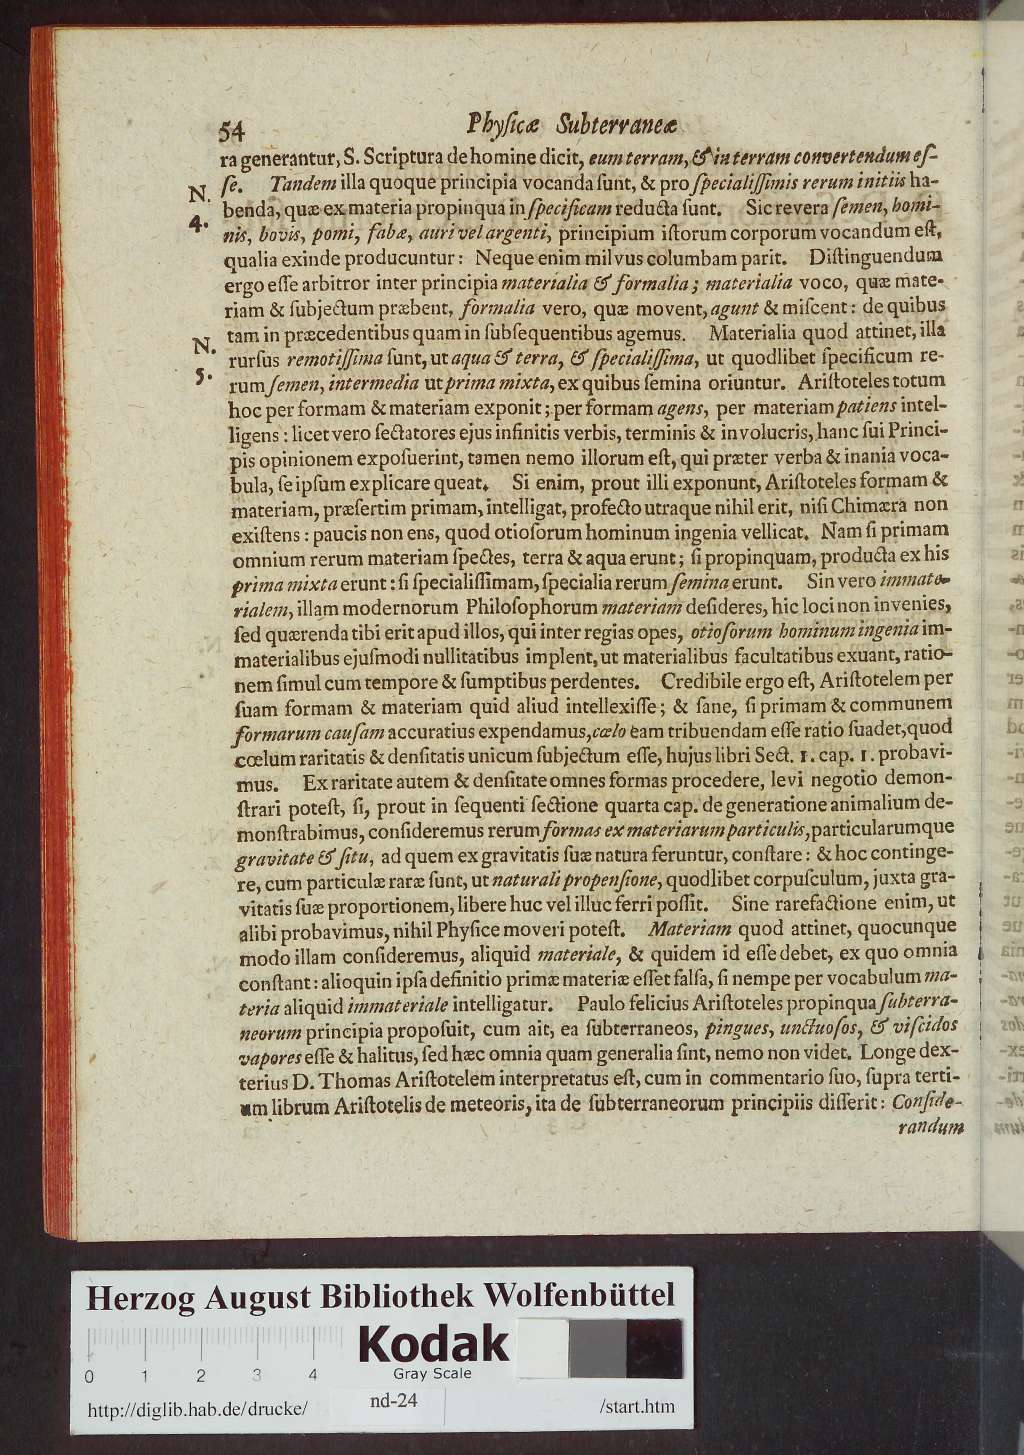 54 Phyſicæ Subterraneæ
ra generantur, S. Scriptura de homine dicit, eum terram, & in terram convertendum eſ-
ſe. Tandem illa quoque principia vocanda ſunt, & pro ſpecialiſſimis rerum initiis ha-
N.
4.
benda, quæ ex materia propinqua in ſpecificam reducta ſunt. Sic revera ſemen, homi-
nis, bovis, pomi, fabæ, auri vel argenti, principium iſtorum corporum vocandum eſt,
qualia exinde producuntur: Neque enim milvus columbam parit. Diſtinguendum
ergo eſſe arbitror inter principia materialia & formalia; materialia voco, quæ mate-
riam & ſubjectum præbent, formalia vero, quæ movent, agunt & miſcent: de quibus
tam in præcedentibus quam in ſubſequentibus agemus. Materialia quod attinet, illa
N.
5.
rurſus remotiſſima ſunt, ut aqua & terra, & ſpecialiſſima, ut quodlibet ſpecificum re-
rum ſemen, intermedia ut prima mixta, ex quibus ſemina oriuntur. Ariſtoteles totum
hoc per formam & materiam exponit; per formam agens, per materiam patiens intel-
ligens: licet vero ſectatores ejus infinitis verbis, terminis & involucris, hanc ſui Princi-
pis opinionem expoſuerint, tamen nemo illorum eſt, qui præter verba & inania voca-
bula, ſe ipſum explicare queat. Si enim, prout illi exponunt, Ariſtoteles formam &
materiam, præſertim primam, intelligat, profecto utraque nihil erit, niſi Chimæra non
exiſtens: paucis non ens, quod otioſorum hominum ingenia vellicat. Nam ſi primam
omnium rerum materiam ſpectes, terra & aqua erunt; ſi propinquam, producta ex his
prima mixta erunt: ſi ſpecialiſſimam, ſpecialia rerum ſemina erunt. Sin vero immate-
rialem, illam modernorum Philoſophorum materiam deſideres, hic loci non invenies,
ſed quærenda tibi erit apud illos, qui inter regias opes, otioſorum hominum ingenia im-
materialibus ejuſmodi nullitatibus implent, ut materialibus facultatibus exuant, ratio-
nem ſimul cum tempore & ſumptibus perdentes. Credibile ergo eſt, Ariſtotelem per
ſuam formam & materiam quid aliud intellexiſſe; & ſane, ſi primam & communem
formarum cauſam accuratius expendamus, cœlo eam tribuendam eſſe ratio ſuadet, quod
cœlum raritatis & denſitatis unicum ſubjectum eſſe, hujus libri Sect. 1. cap. 1. probavi-
mus. Ex raritate autem & denſitate omnes formas procedere, levi negotio demon-
ſtrari poteſt, ſi, prout in ſequenti ſectione quarta cap. de generatione animalium de-
monſtrabimus, conſideremus rerum formas ex materiarum particulis, particularumque
gravitate & ſitu, ad quem ex gravitatis ſuæ natura feruntur, conſtare: & hoc continge-
re, cum particulæ raræ ſunt, ut naturali propenſione, quodlibet corpuſculum, juxta gra-
vitatis ſuæ proportionem, libere huc vel illuc ferri poſſit. Sine rarefactione enim, ut
alibi probavimus, nihil Phyſice moveri poteſt. Materiam quod attinet, quocunque
modo illam conſideremus, aliquid materiale, & quidem id eſſe debet, ex quo omnia
conſtant: alioquin ipſa definitio primæ materiæ eſſet falſa, ſi nempe per vocabulum ma-
teria aliquid immateriale intelligatur. Paulo felicius Ariſtoteles propinqua ſubterra-
neorum principia propoſuit, cum ait, ea ſubterraneos, pingues, unctuoſos, & viſcidos
vapores eſſe & halitus, ſed hæc omnia quam generalia ſint, nemo non videt. Longe dex-
terius D. Thomas Ariſtotelem interpretatus eſt, cum in commentario ſuo, ſupra terti-
um librum Ariſtotelis de meteoris, ita de ſubterraneorum principiis diſſerit: Conſide-
randum
Herzog August Bibliothek Wolfenbüttel
Kodak
Gray Scale
0 1 2 3 4
http://diglib.hab.de/drucke/ nd-24 /start.htm